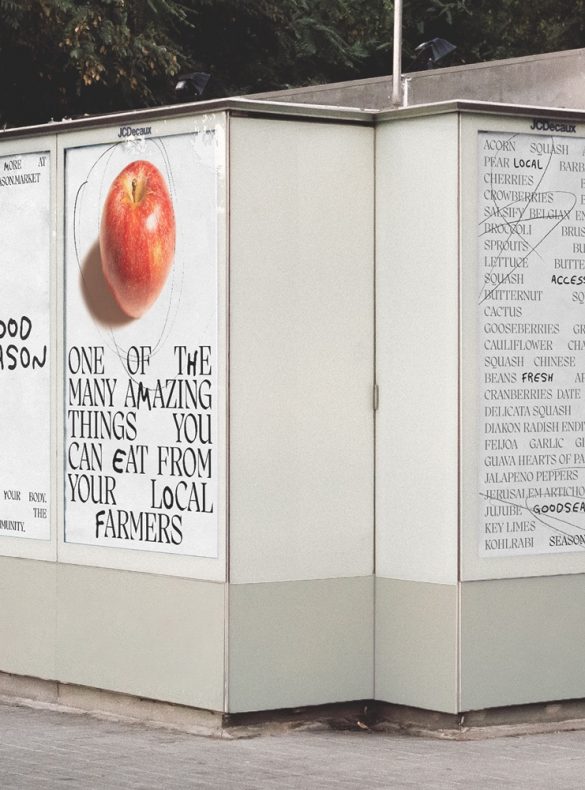 MORE AT
SON.MARKET
OOD
ASON
YOUR BODY.
THE
MUNITY.
JCDecaux
ONE OF THE
MANY AMAZING
THINGS YOU
CAN EAT FROM
YOUR LOCAL
FARMERS
JCDecaux
ACORN SQUASH
PEAR LOCAL BARB
CHERRIES
CROWBERRIES
SALSIFY BELGIAN EN
BROCCOLI BRUS
SPROUTS BU
LETTUCE BUTTE
SQUASH ACCESS
BUTTERNUT SQ
CACTUS
GOOSEBERRIES GR
CAULIFLOWER CHA
SQUASH CHINESE
BEANS FRESH AP
CRANBERRIES DATE
DELICATA SQUASH
DIAKON RADISH ENDI
FEIJOA GARLIC GI
GUAVA HEARTS OF PA
JALAPENO PEPPERS
JERUSALEM ARTICHO
JUJUBE GOODSEA
KEY LIMES
KOHLRABI SEASON